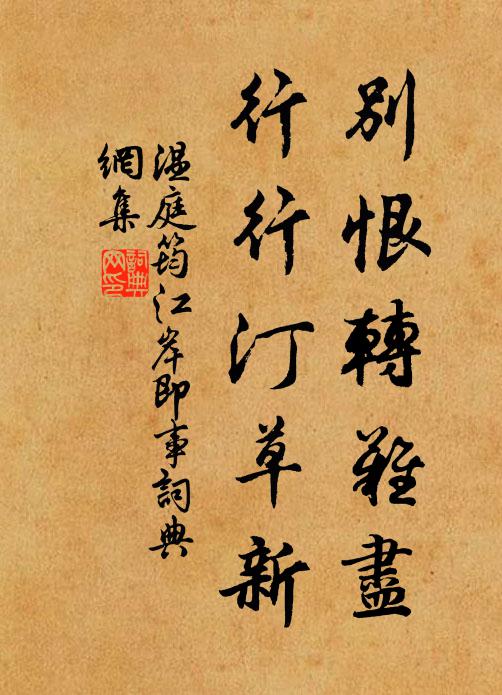 別恨轉難盡
行行汀草新
溫庭筠江岸即事詞典
網集
詞典
网印